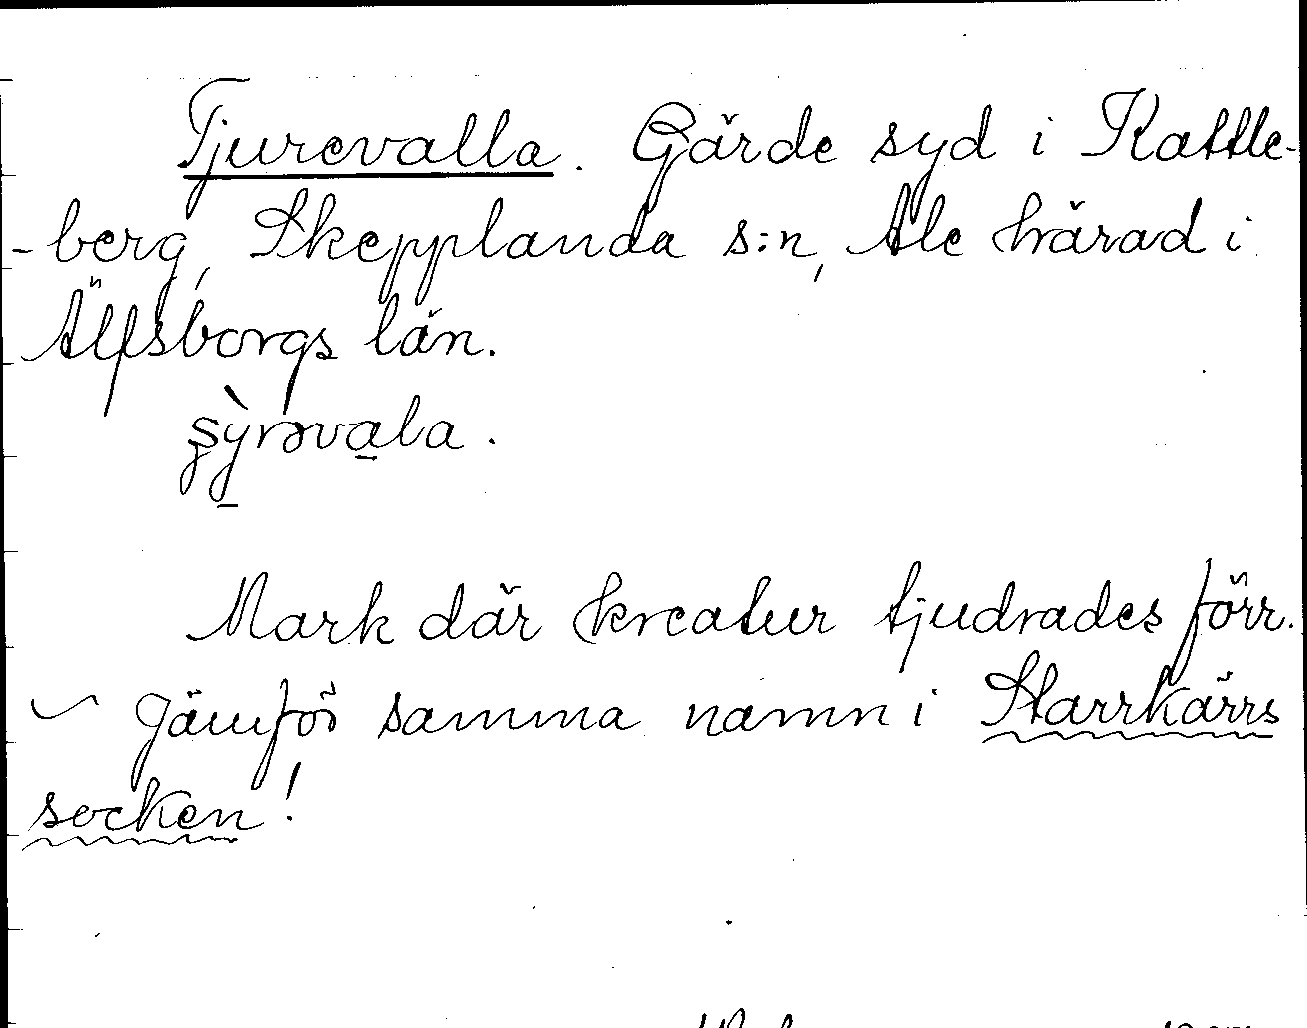 Tjurevalla. Gärde syd i Kattle-
-berg, Skepplanda s:n, Ale härad i
Älfsborgs län.
Mark där kreatur tjudrades förr.
Jämför samma namn i Starrkärrs
socken!